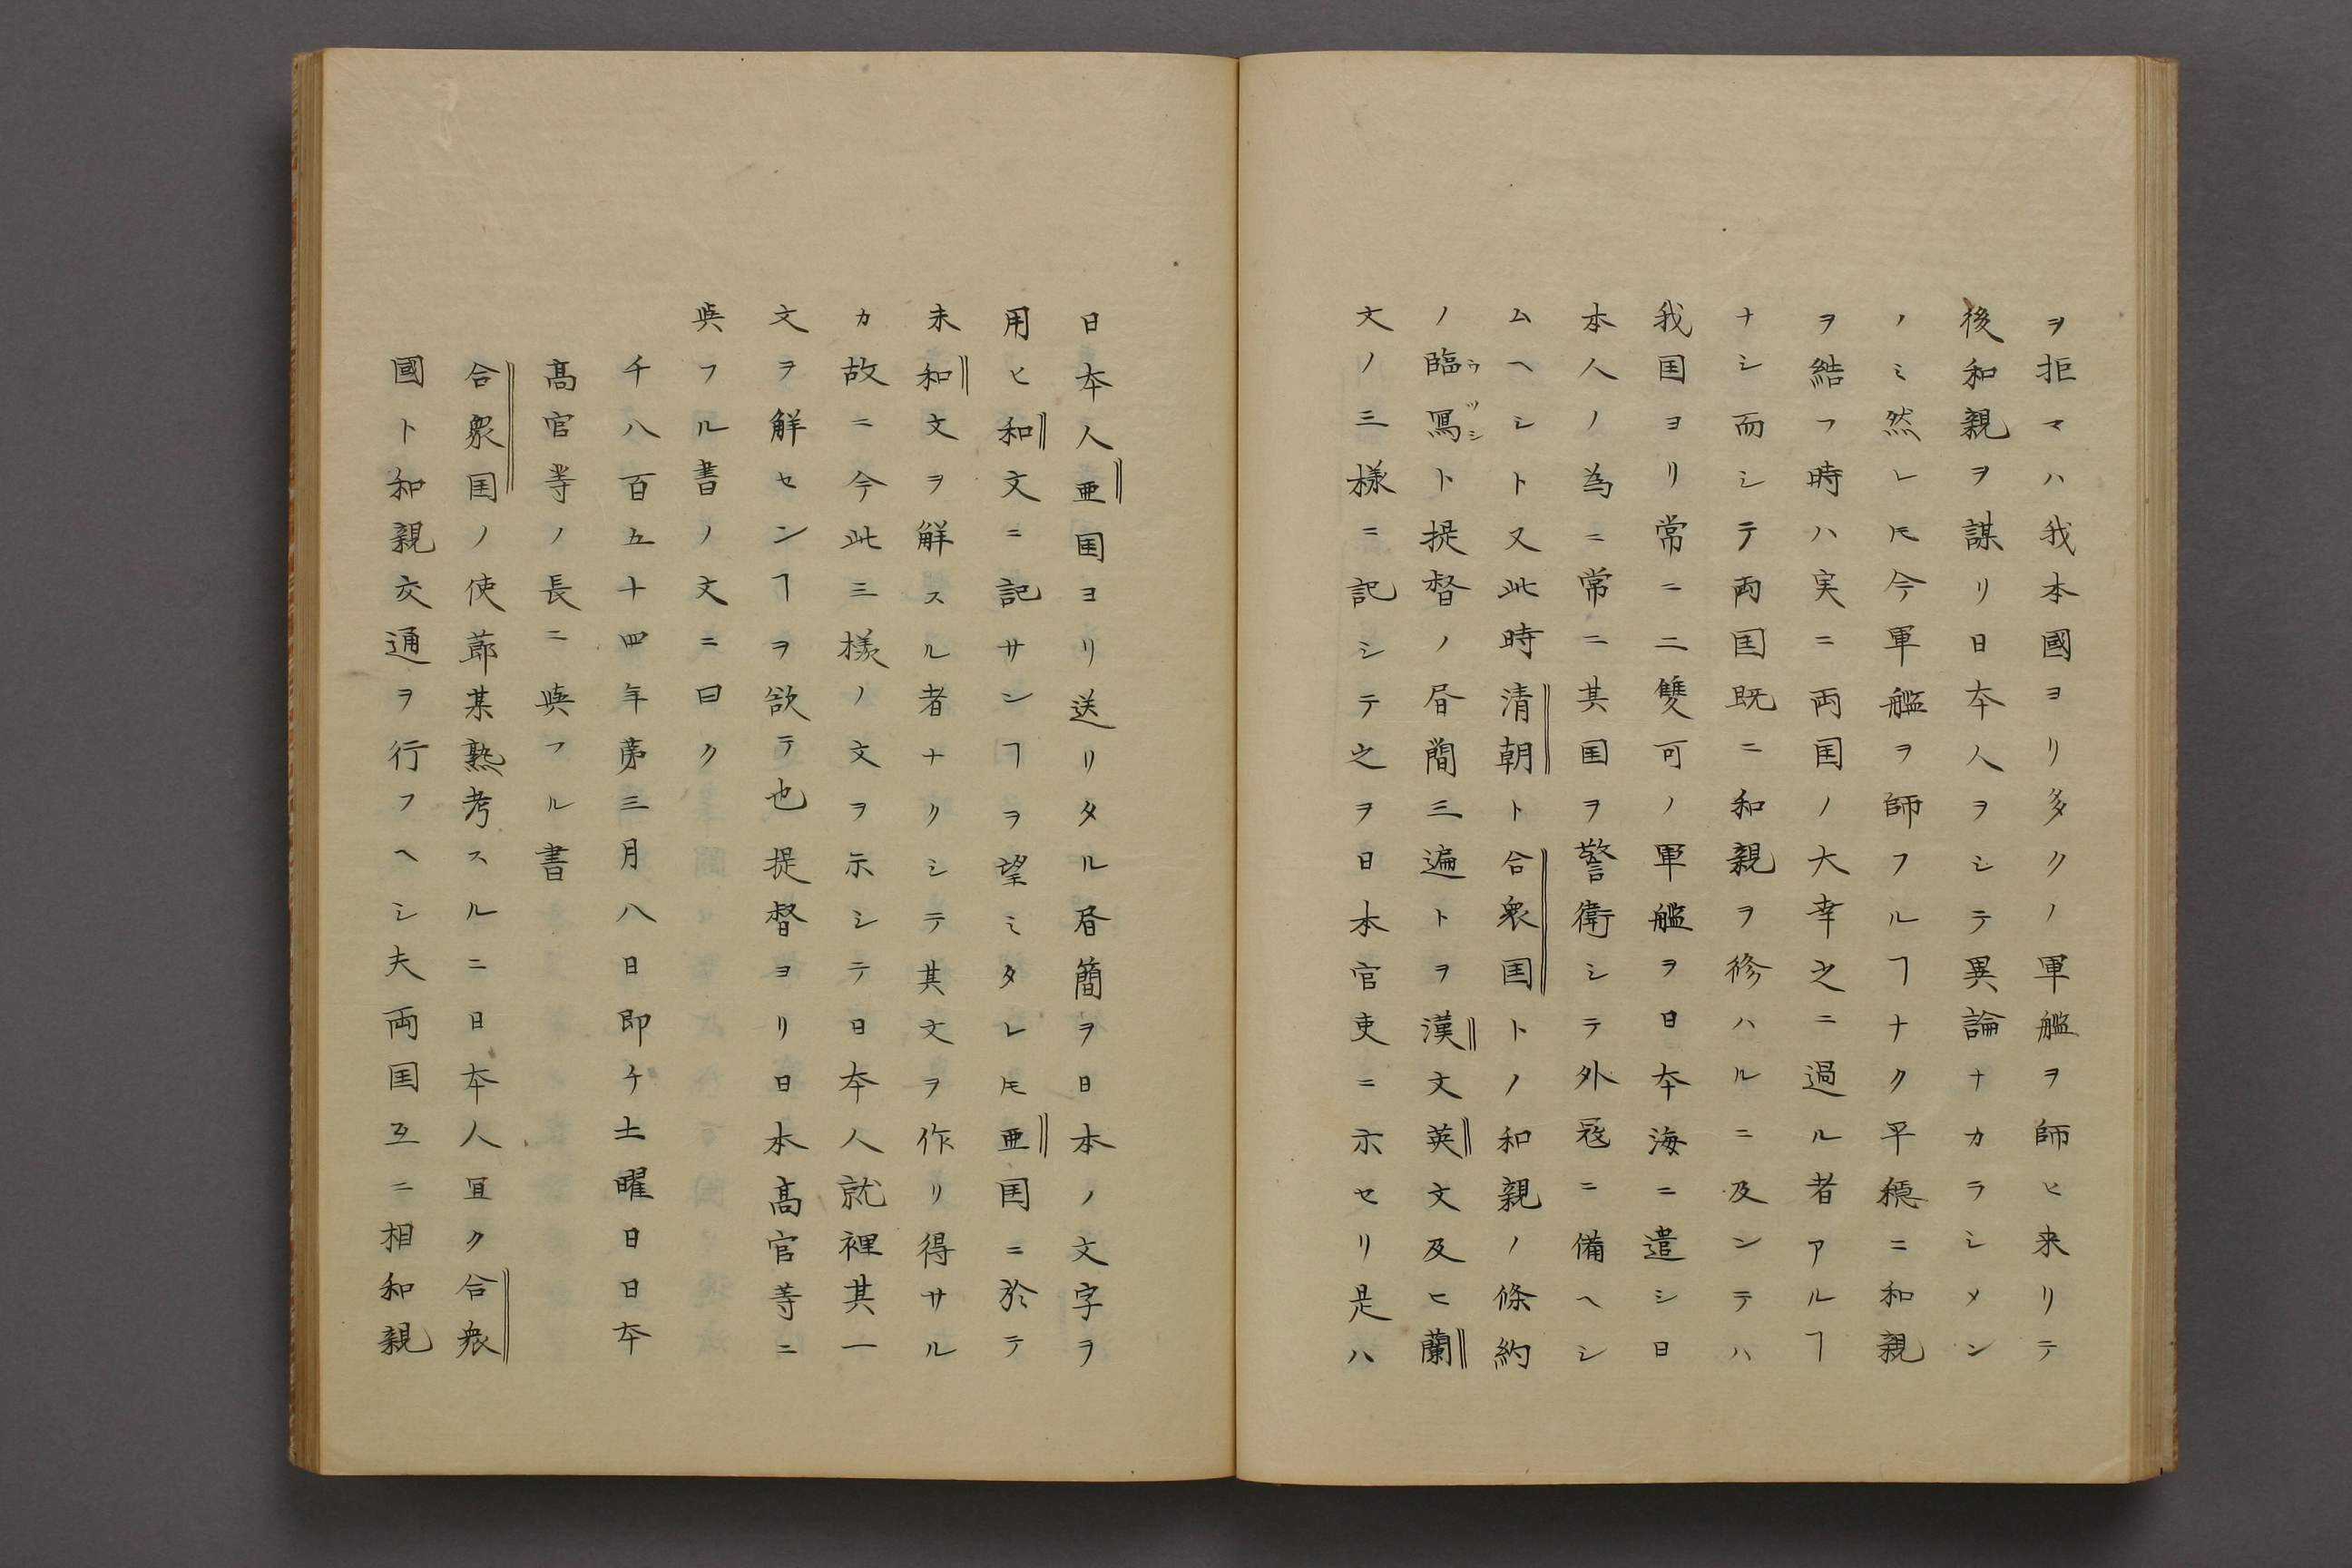 ヲ拒マハ我本國ヨリ多クノ軍艦ヲ師ヒ来リテ
後和親ヲ謀リ日本人ヲシテ異論ナカラシメン
ノミ然レ𪜈今軍艦ヲ師フルヿナク平穏ニ和親
ヲ結フ時ハ実ニ両国ノ大幸之ニ過ル者アルヿ
ナシ而シテ両国既ニ和親ヲ修ハルニ及ンテハ
我国ヨリ常ニ二雙可ノ軍艦ヲ日本海ニ遣シ日
本人ノ為ニ常ニ其国ヲ警衛シテ外冦ニ備ヘシ
ムヘシト又此時清朝ト合衆国トノ和親ノ條約
ノ臨寫ウツシト提督ノ昏簡三遍トヲ漢文英文及ヒ蘭
文ノ三樣ニ記シテ之ヲ日本官吏ニ示セリ是ハ
日本人亜国ヨリ送リタル昏簡ヲ日本ノ文字ヲ
用ヒ和文ニ記サンヿヲ望ミタレ𪜈亜国ニ於テ
未和文ヲ解スル者ナクシテ其文ヲ作リ得サル
カ故ニ今此三樣ノ文ヲ示シテ日本人就裡其一
文ヲ解センヿヲ欲テ也提督ヨリ日本髙官等ニ
與フル書ノ文ニ曰ク
千八百五十四年第三月八日即チ土曜日日本
髙官等ノ長ニ與フル書
合衆国ノ使莭某熟考スルニ日本人宜ク合衆
國ト和親交通ヲ行フヘシ夫両国互ニ相和親